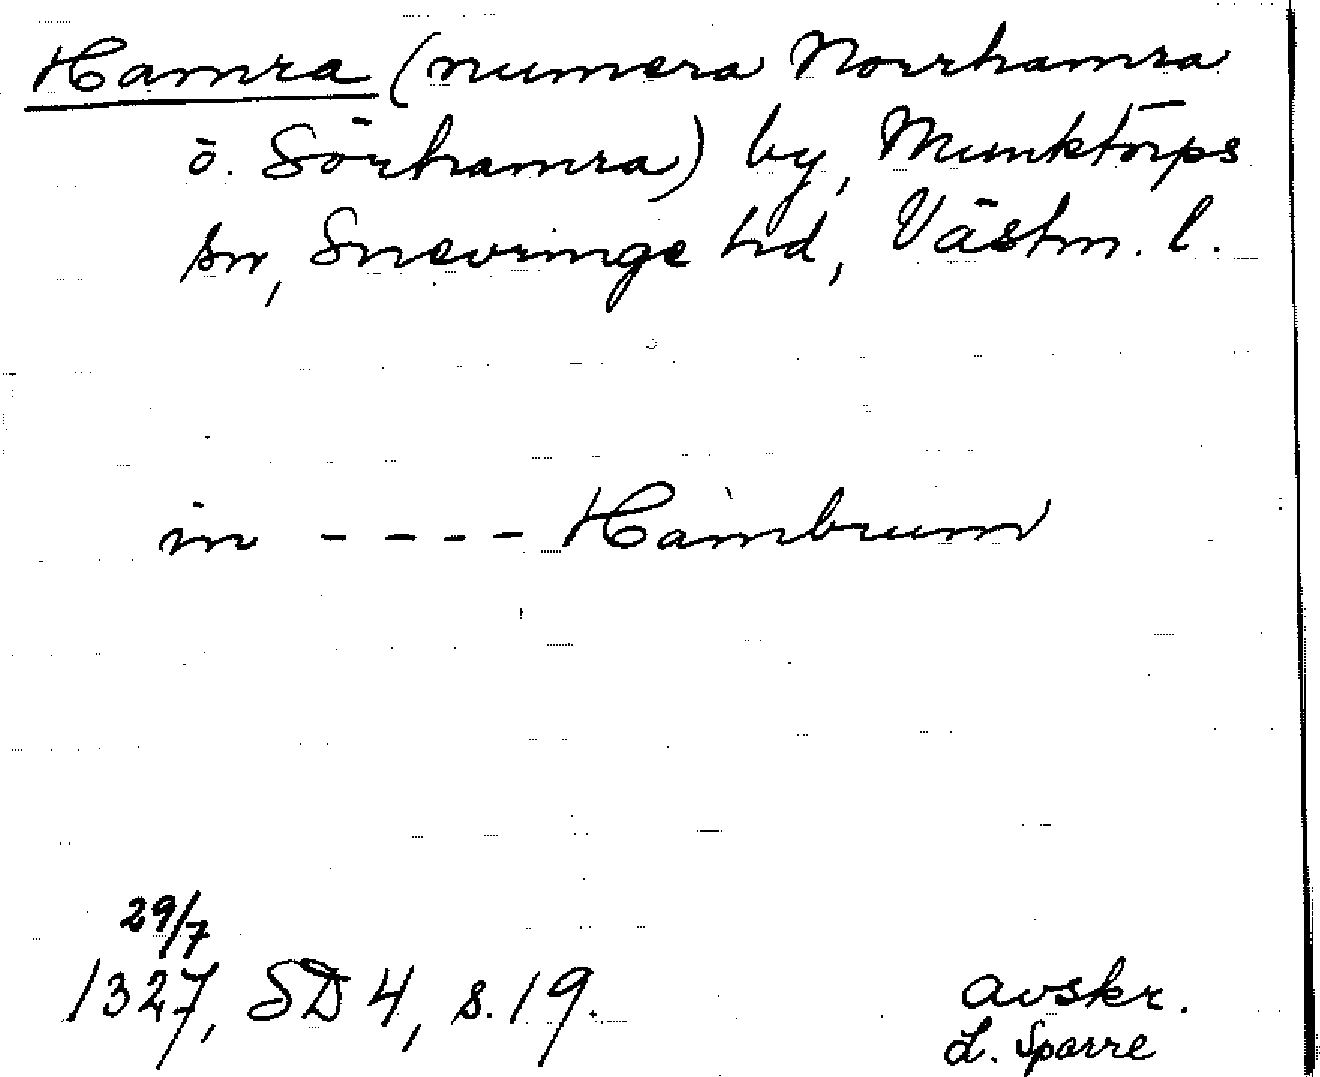 Hamra (numera Norrhamra
ö. Sörhamra) by, Munktorps
sn, Snevringe hd, Västm. l.
in - - - - Hambrum
29/7
1327, SD 4, s. 19.
avskr.
L. Sparre